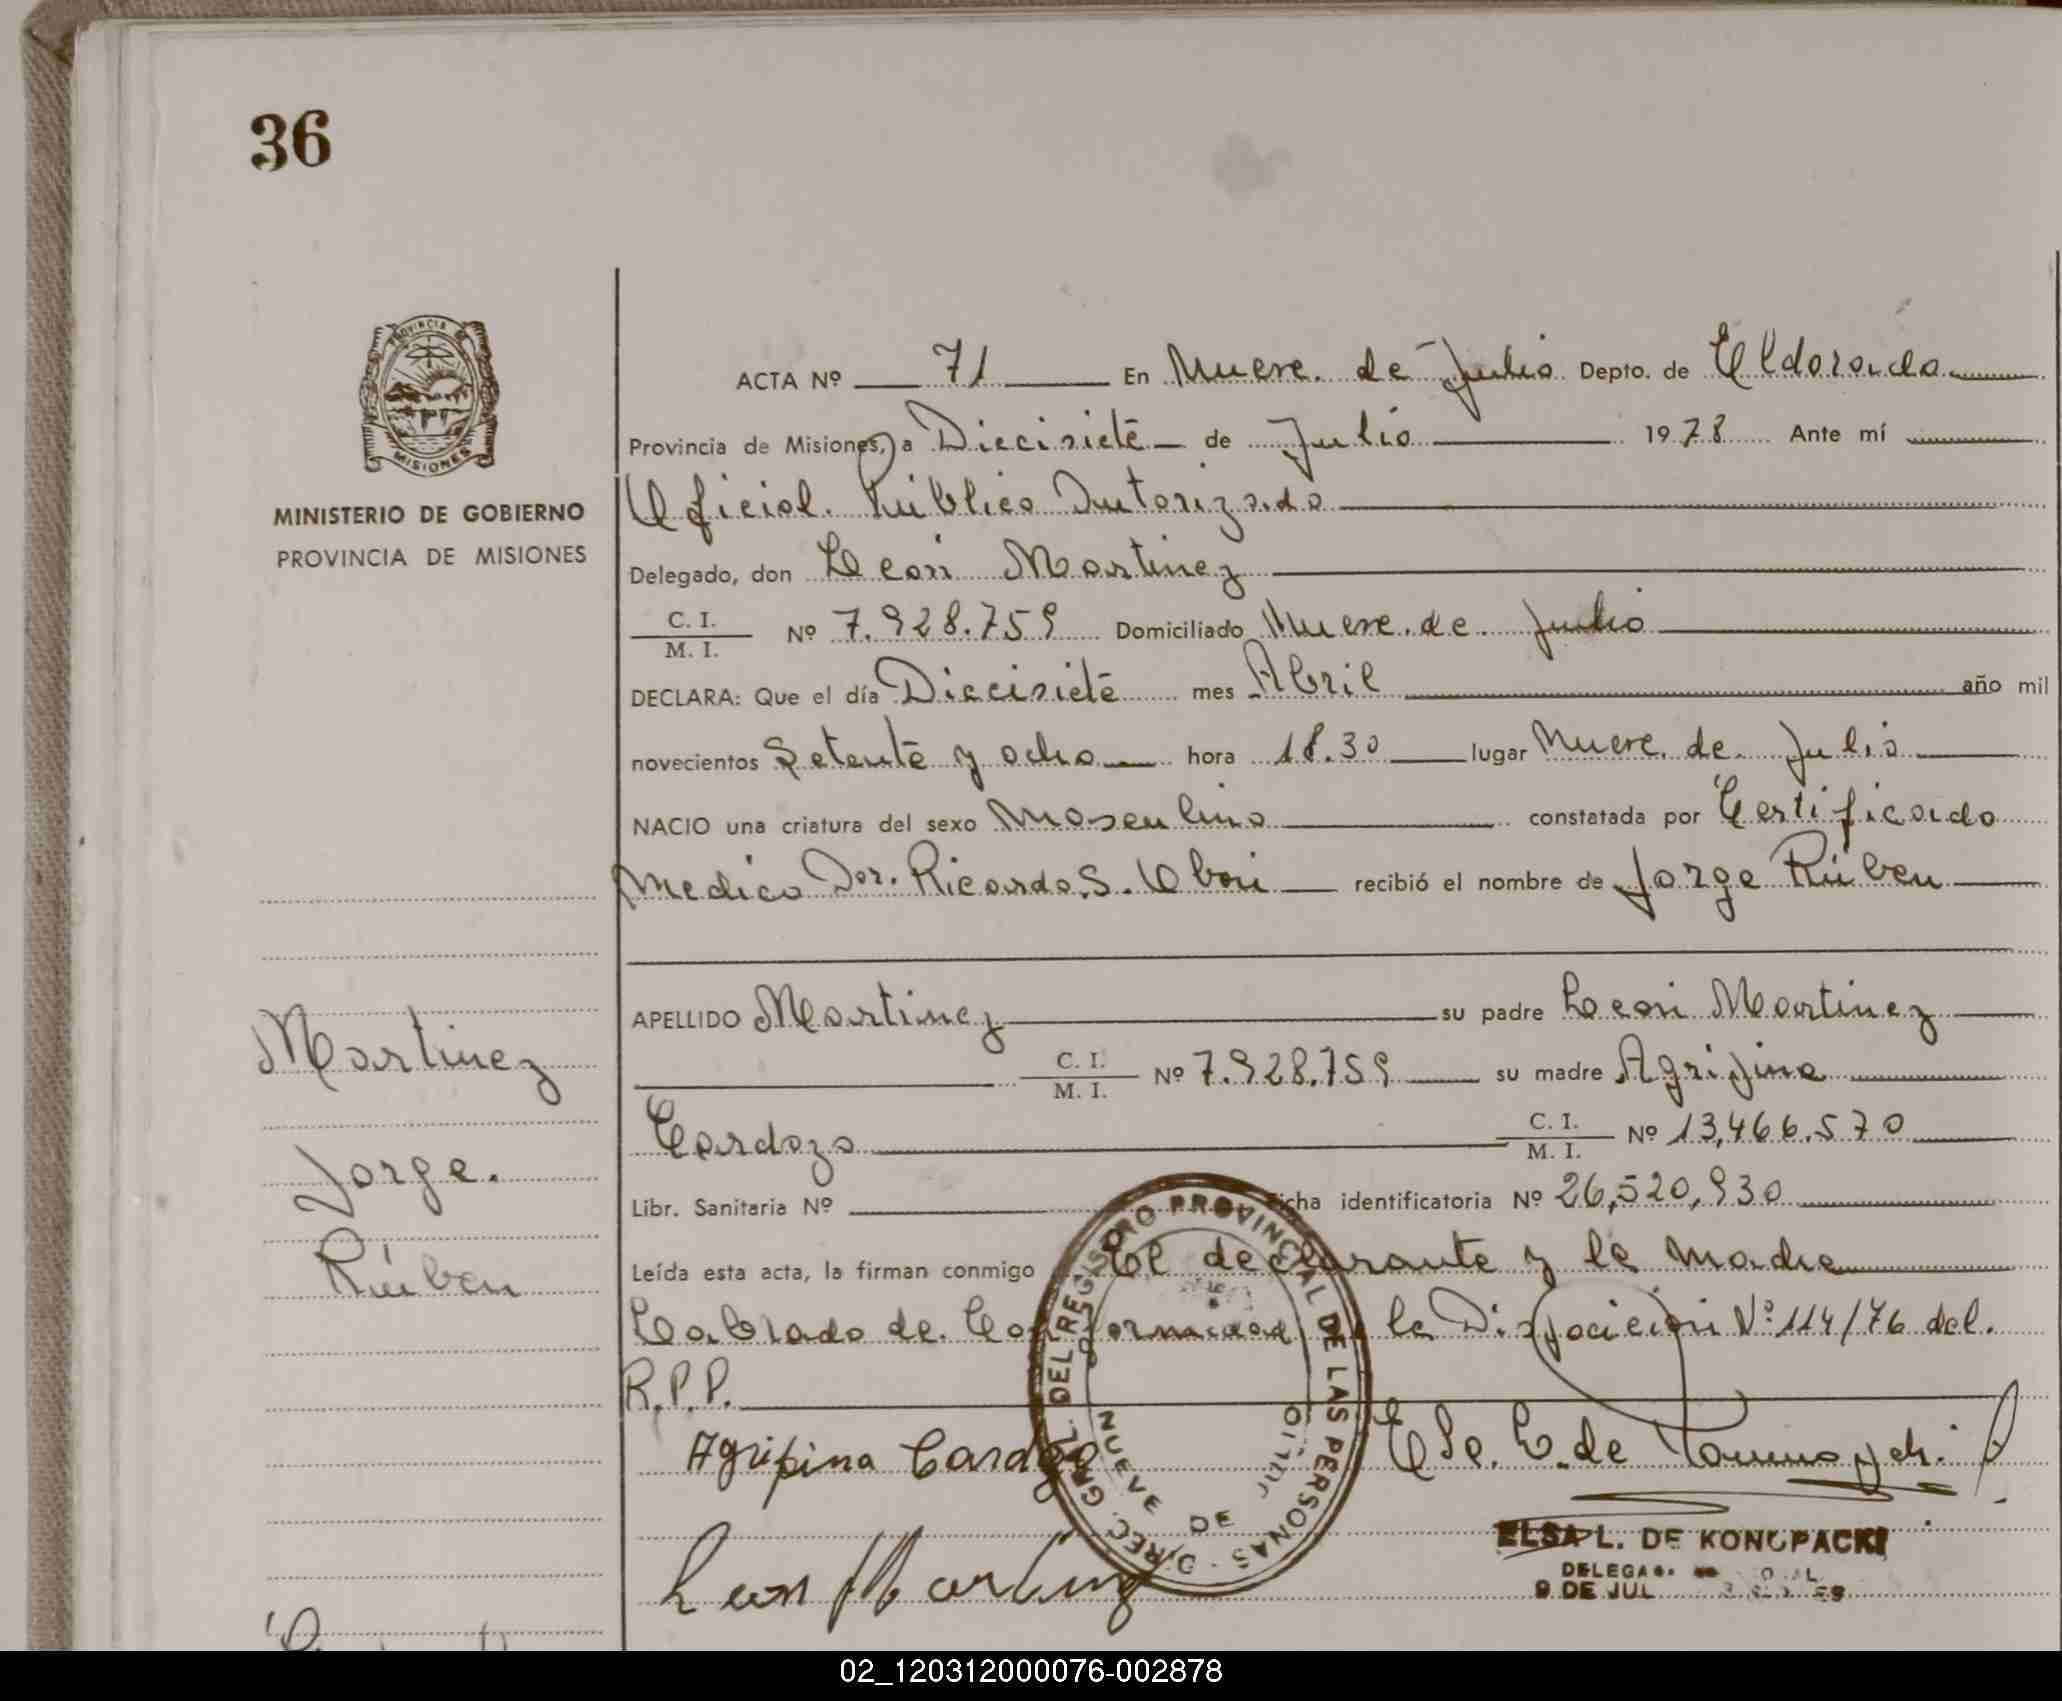 36
PROVINCIA DE
MISIONES
MINISTERIO DE GOBIERNO
PROVINCIA DE MISIONES
ACTA Nº 71 En Nueve de Julio Depto. de Eldorado
Provincia de Misiones, a Diecisiete de Julio 1978 Ante mí
Oficial Público Autorizado
Delegado, don León Martinez
C. I.
M. I. Nº 7.928.759 Domiciliado Nueve de Julio
DECLARA: Que el día Diecisiete mes Abril año mil
novecientos Setenta y ocho hora 18.30 lugar Nueve de Julio
NACIO una criatura del sexo Masculino constatada por Certificado
Medico Dor. Ricardo S. recibió el nombre de Jorge Rúben
APELLIDO Martinez su padre León Martinez
C. I.
M. I. Nº 7.928.759 su madre Agripina
Cardozo C. I.
M. I. Nº 13,466.570
Libr. Sanitaria Nº Ficha identificatoria Nº 26,520,930
Leída esta acta, la firman conmigo El declarante y la Madre
Labrado de Conformidad a la Disposición Nº 114/76 del
R.P.P.
Agripina Cardozo
Leon Martinez
Martinez
Jorge.
Rúben
DIREC. GRAL. DEL REGISTRO PROVINCIAL DE LAS PERSONAS
NUEVE DE JULIO
ELSA L. DE KONOPACKI
9 DE JUL
02_120312000076-002878